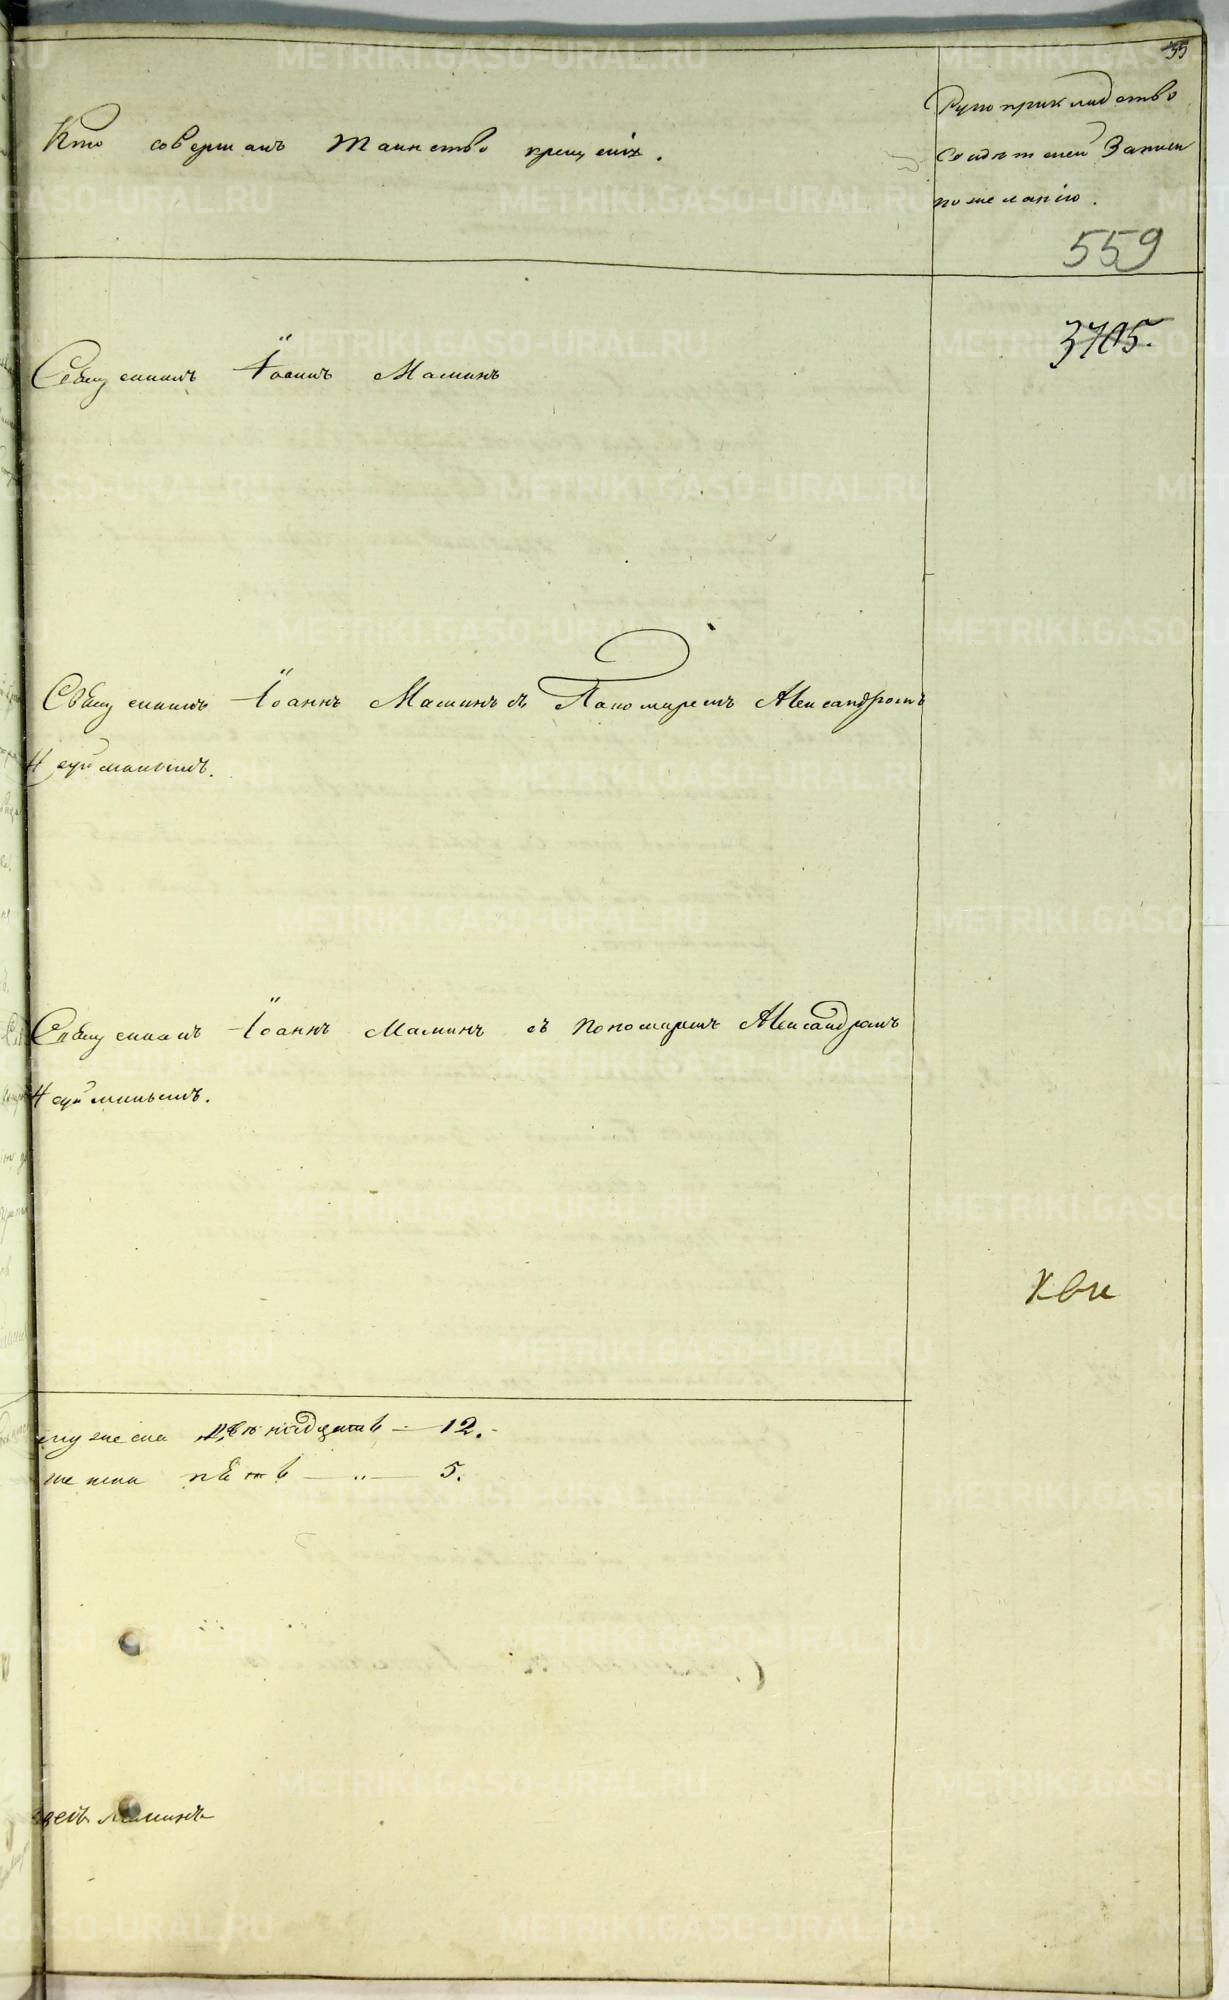 55
Кто совершалъ таинство крещенія.
Рукоприкладство
свидѣтелей записи
по желанію.
559
3705.
Священникъ Іоаннъ Маминъ
Священникъ Іоаннъ Маминъ съ Пономаремъ Александромъ
Неуйминымъ.
Священникъ Іоаннъ Маминъ съ пономаремъ Александромъ
Неуйминымъ.
мужеска двенадцать — 12.
женска пять — „ — 5.
Маминъ